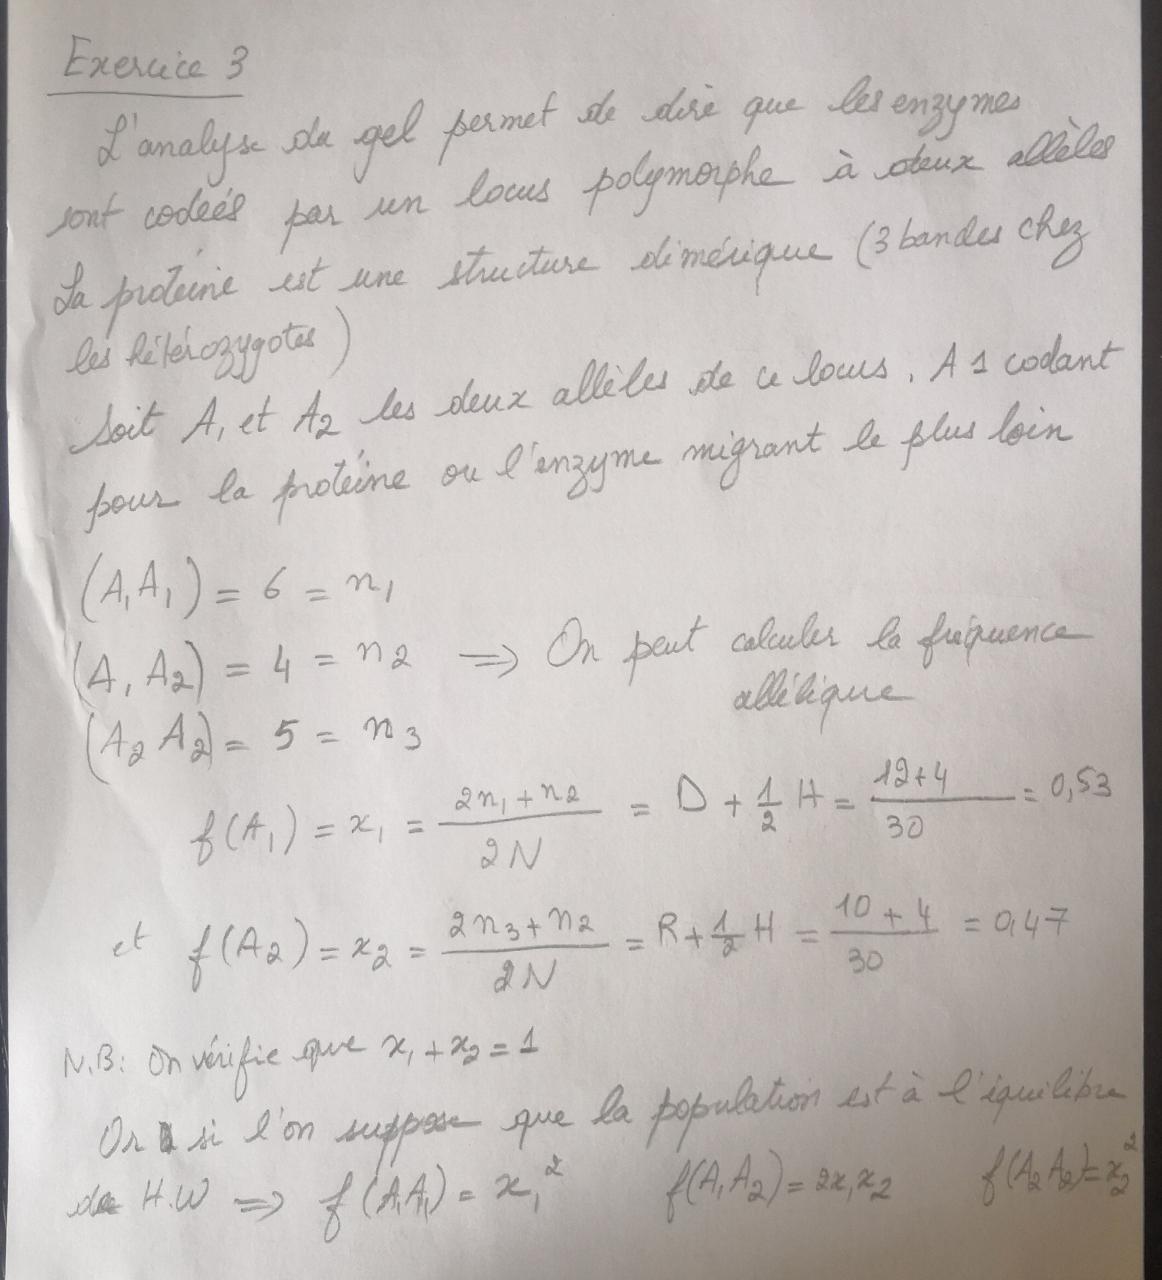 Exercice 3
L'analyse du gel permet de dire que les enzymes
sont codées par un locus polymorphe à deux allèles
La protéine est une structure dimérique (3 bandes chez
les hétérozygotes)
Soit A₁ et A₂ les deux allèles de ce locus. A1 codant
pour la protéine ou l'enzyme migrant le plus loin
(A₁A₁) = 6 = n₁
(A₁A₂) = 4 = n₂ ⇒ On peut calculer la fréquence
allélique
(A₂A₂) = 5 = n₃
f(A₁) = x₁ = (2n₁ + n₂)/2N = D + 1/2 H = (12+4)/30 = 0,53
et f(A₂) = x₂ = (2n₃ + n₂)/2N = R + 1/2 H = (10 + 4)/30 = 0,47
N.B: On vérifie que x₁ + x₂ = 1
Or si l'on suppose que la population est à l'équilibre
de H.W ⇒ f(A₁A₁) = x₁² f(A₁A₂) = 2x₁x₂ f(A₂A₂) = x₂²